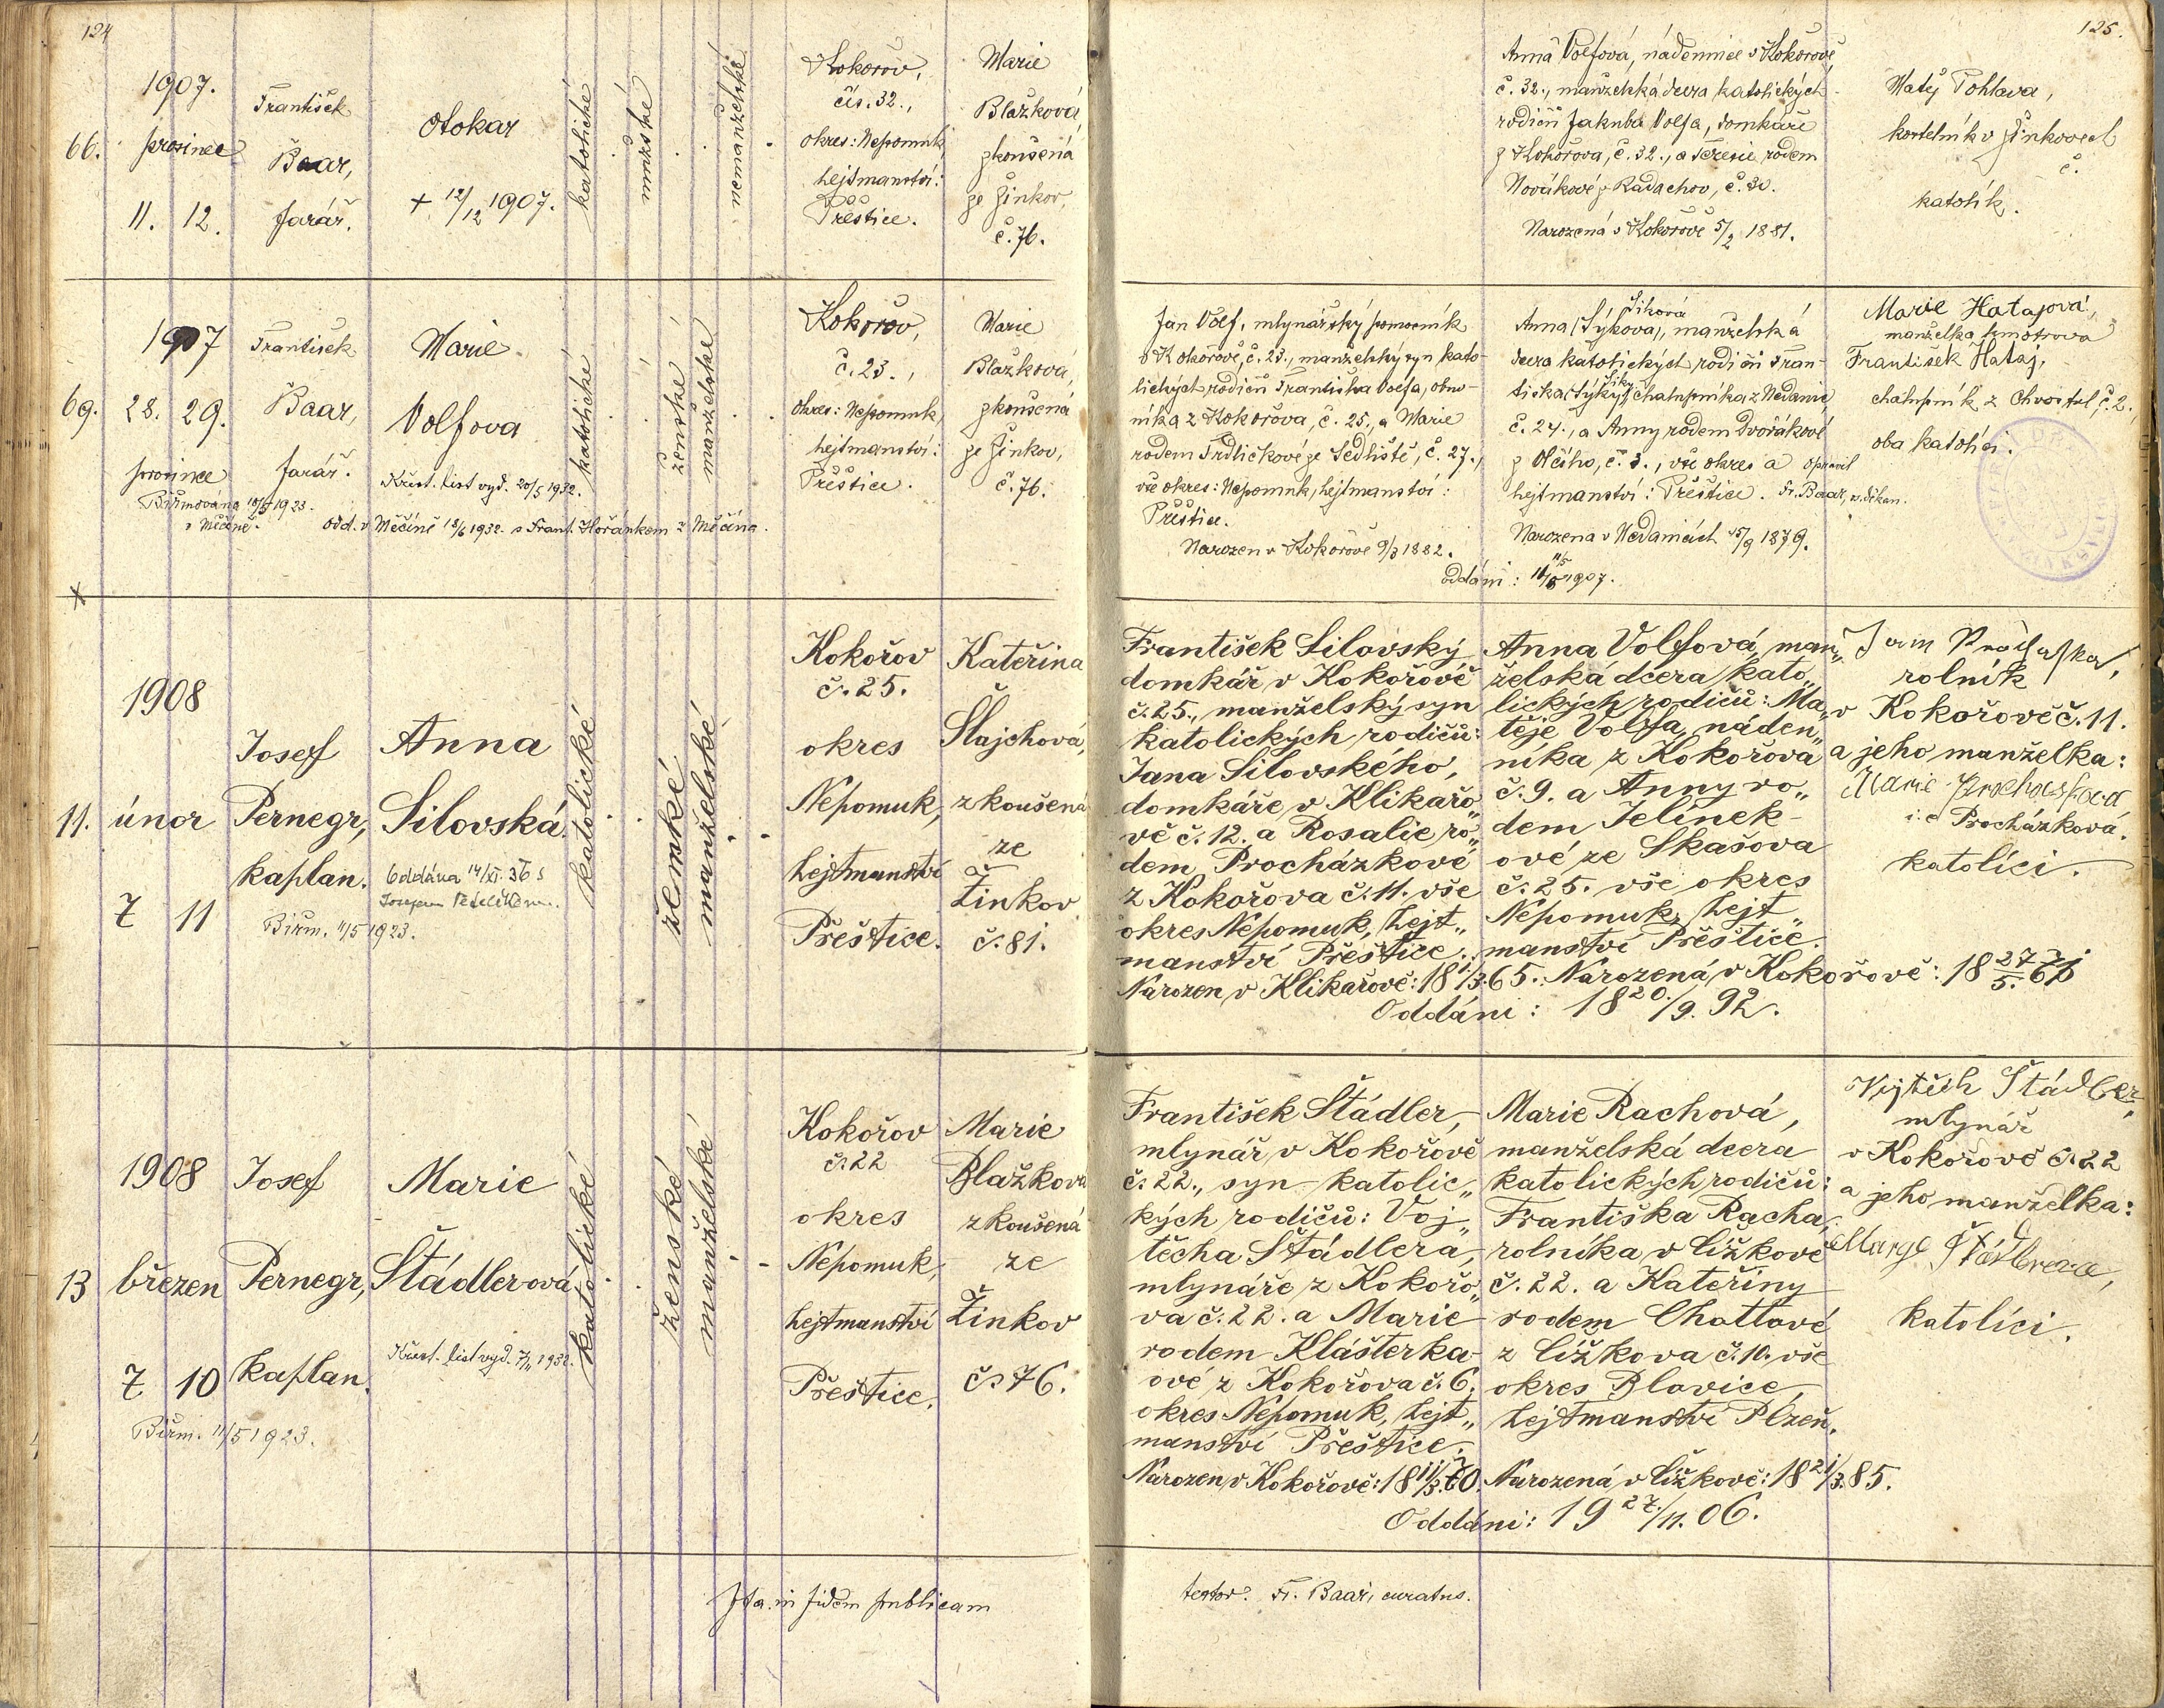 124
1907.
66.
prosinec
11. 12.
František
Baar,
farář.
Otokar
+ 12/12 1907.
katolické
mužské
nemanželské
Kokořov,
čís. 32.,
okres: Nepomuk,
hejtmanství:
Přeštice.
Marie
Blažková,
zkoušená
ze Žinkov,
č. 76.
125.
Anna Volfová, nádennice v Kokořově,
č. 32., manželská dcera katolických
rodičů Jakuba Volfa, domkáře
z Kokořova, č. 32., a Terezie rodem
Novákové z Radachov, č. 30.
Narozená v Kokořově 5/2 1881.
Matěj Pohlava,
kostelník v Žinkovech
č.
katolík.
1907
69. 28. 29.
prosince
Biřmována 10/5 1923.
v Měčíně.
František
Baar,
farář.
Marie
Volfova
Křest. list vyd. 20/5 1932.
odd. v Měčíně 18/6 1932. s Frant. Hořánkem z Měčína.
katolické
ženské
manželské
Kokořov,
č. 23.,
okres: Nepomuk,
hejtmanství:
Přeštice.
Marie
Blažková,
zkoušená
ze Žinkov,
č. 76.
Jan Volf, mlynářský pomocník
v Kokořově, č. 23., manželský syn kato-
lických rodičů Františka Volfa, obuv-
níka z Kokořova, č. 25., a Marie
rodem Trdličkové ze Sedliště, č. 27.,
vše okres: Nepomuk, hejtmanství:
Přeštice.
Narozen v Kokořově 9/3 1882.
Siková
Anna (Sýkova), manželská
dcera katolických rodičů Fran-
Siky
tiska (Sýky), chalupníka z Nedanic,
č. 24., a Anny rodem Dvořákové
z Olešího, č. 3., vše okres a opravil
hejtmanství: Přeštice. Fr. Baar, v. děkan.
Narozena v Nedanicích 15/9 1879.
11/5
oddáni: 11/5 1907.
Marie Hatajová,
manželka kmotrova
František Hataj,
chalupník z Chvostul, č. 2.,
oba katolíci.
1908
11. únor
7 11
Josef
Pernegr,
kaplan.
Biřm. 11/5 1923.
Anna
Silovská
Oddána 14/XI. 36 s
katolické
ženské
manželské
Kokořov
č. 25.
okres
Nepomuk,
hejtmanství
Přeštice.
Kateřina
Šlajchová,
zkoušená
ze
Žinkov
č. 81.
František Silovský
domkář v Kokořově
č. 25., manželský syn
katolických rodičů:
Jana Silovského,
domkáře v Klikařo„
vě č. 12. a Rosalie ro„
dem Procházkové
z Kokořova č. 11. vše
okres Nepomuk, hejt„
manství Přeštice.
Narozen v Klikařově: 18 1/3. 65.
Anna Volfová, man„
želská dcera kato„
lických rodičů: Ma„
těje Volfa, náden„
níka z Kokořova
č. 9. a Anny ro„
dem Jelínek-
ové ze Skašova
č. 25. vše okres
Nepomuk, hejt„
manství Přeštice.
Narozená v Kokořově: 18 27/5. 71
Oddáni: 18 20./9. 92.
Jan Procháska,
rolník
v Kokořově č. 11.
a jeho manželka:
Marie
i. e Procházková.
katolíci.
1908
13 březen
7 10
Biřm. 11/5 1923.
Josef
Pernegr,
kaplan.
Marie
Štádlerová
Křest. list vyd. 7/11 1932.
katolické
ženské
manželské
Kokořov
č. 22
okres
Nepomuk,
hejtmanství
Přeštice.
Marie
Blažková
zkoušená
ze
Žinkov
č. 76.
František Štádler,
mlynář v Kokořově
č. 22., syn katolic„
kých rodičů: Voj„
těcha Štádlera,
mlynáře z Kokořo„
va č. 22. a Marie
rodem Klášterka-
ové z Kokořova č. 6.
okres Nepomuk, hejt„
manství Přeštice.
Narozen v Kokořově: 18 11/3. 70.
Marie Rachová,
manželská dcera
katolických rodičů:
Františka Racha,
rolníka v Čížkově
č. 22. a Kateřiny
rodem Chottové
z Čížkova č. 10. vše
okres Blovice,
hejtmanství Plzeň.
Narozená v Čížkově: 18 21/3. 85.
Oddáni: 19 27./11. 06.
Vojtěch Štádler,
mlynář
v Kokořově č. 22
a jeho manželka:
Štádlerova,
katolíci.
Ita in fidem publicam
testor: Fr. Baar, curatus.